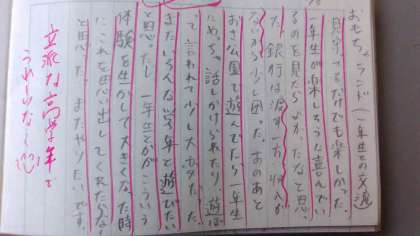 おもちゃランド（一年生との交流
見守るだけでも楽しかった。
一年生が楽しそうに喜んでい
るのを見たらよかったなと思
た。銀行は渡す一方で
ないから少し困った。あのあと
おき公園で遊んでたら一年生
にめっちゃ話しかけられたり、遊ぼ
て言われて少し大
きたいろんな学年と遊びたい
と思ったし一年生とかがこういう
体験を生かして大きくなった時
にこれを思い出してくれたらな
と思った。またやりたいです。
立派な高学年で
うれしいな〜